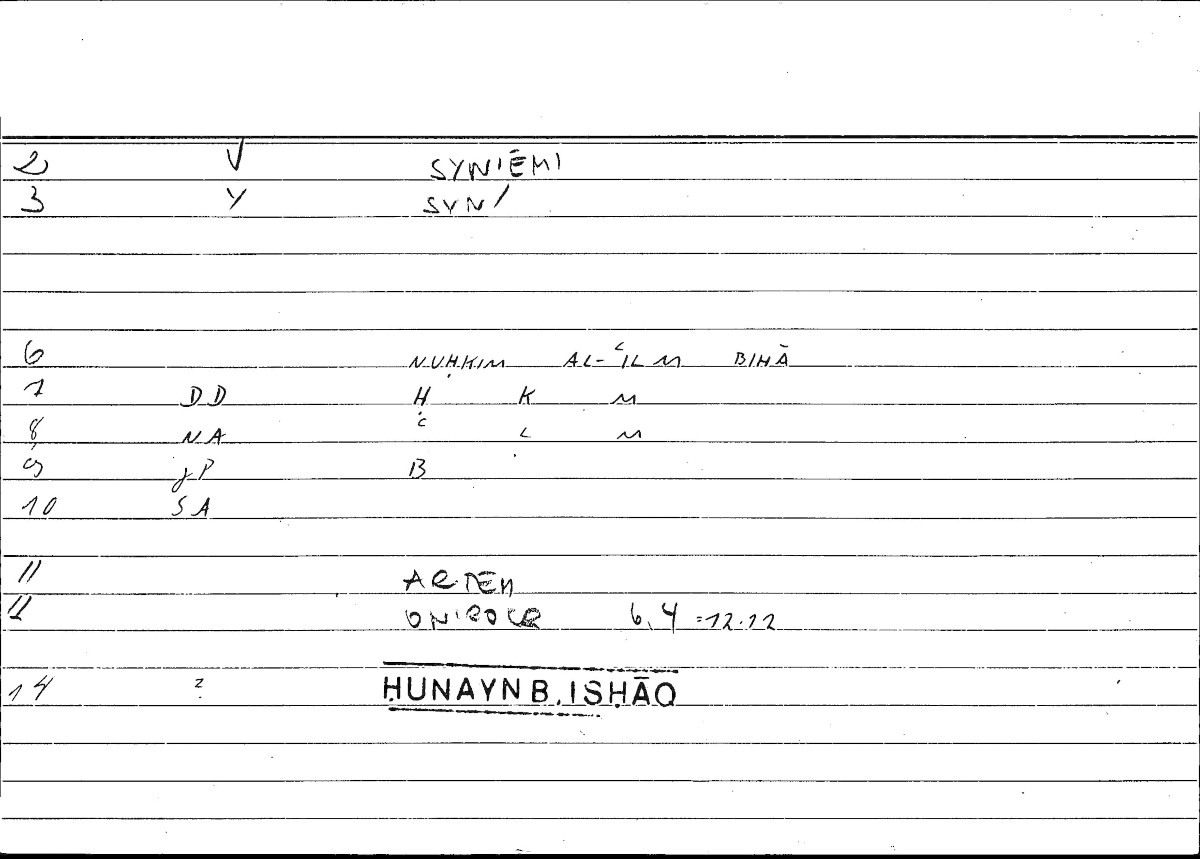 2 V SYNIĒMI
3 Y SYN/
6 NUḤKIM AL-ʿILM BIHĀ
7 DD Ḥ K M
8 NA ʿ L M
9 JP B
10 SA
11 ARTEM
12 ONIROCR 6,4 =12.12
14 Z ḤUNAYN B. ISḤĀQ